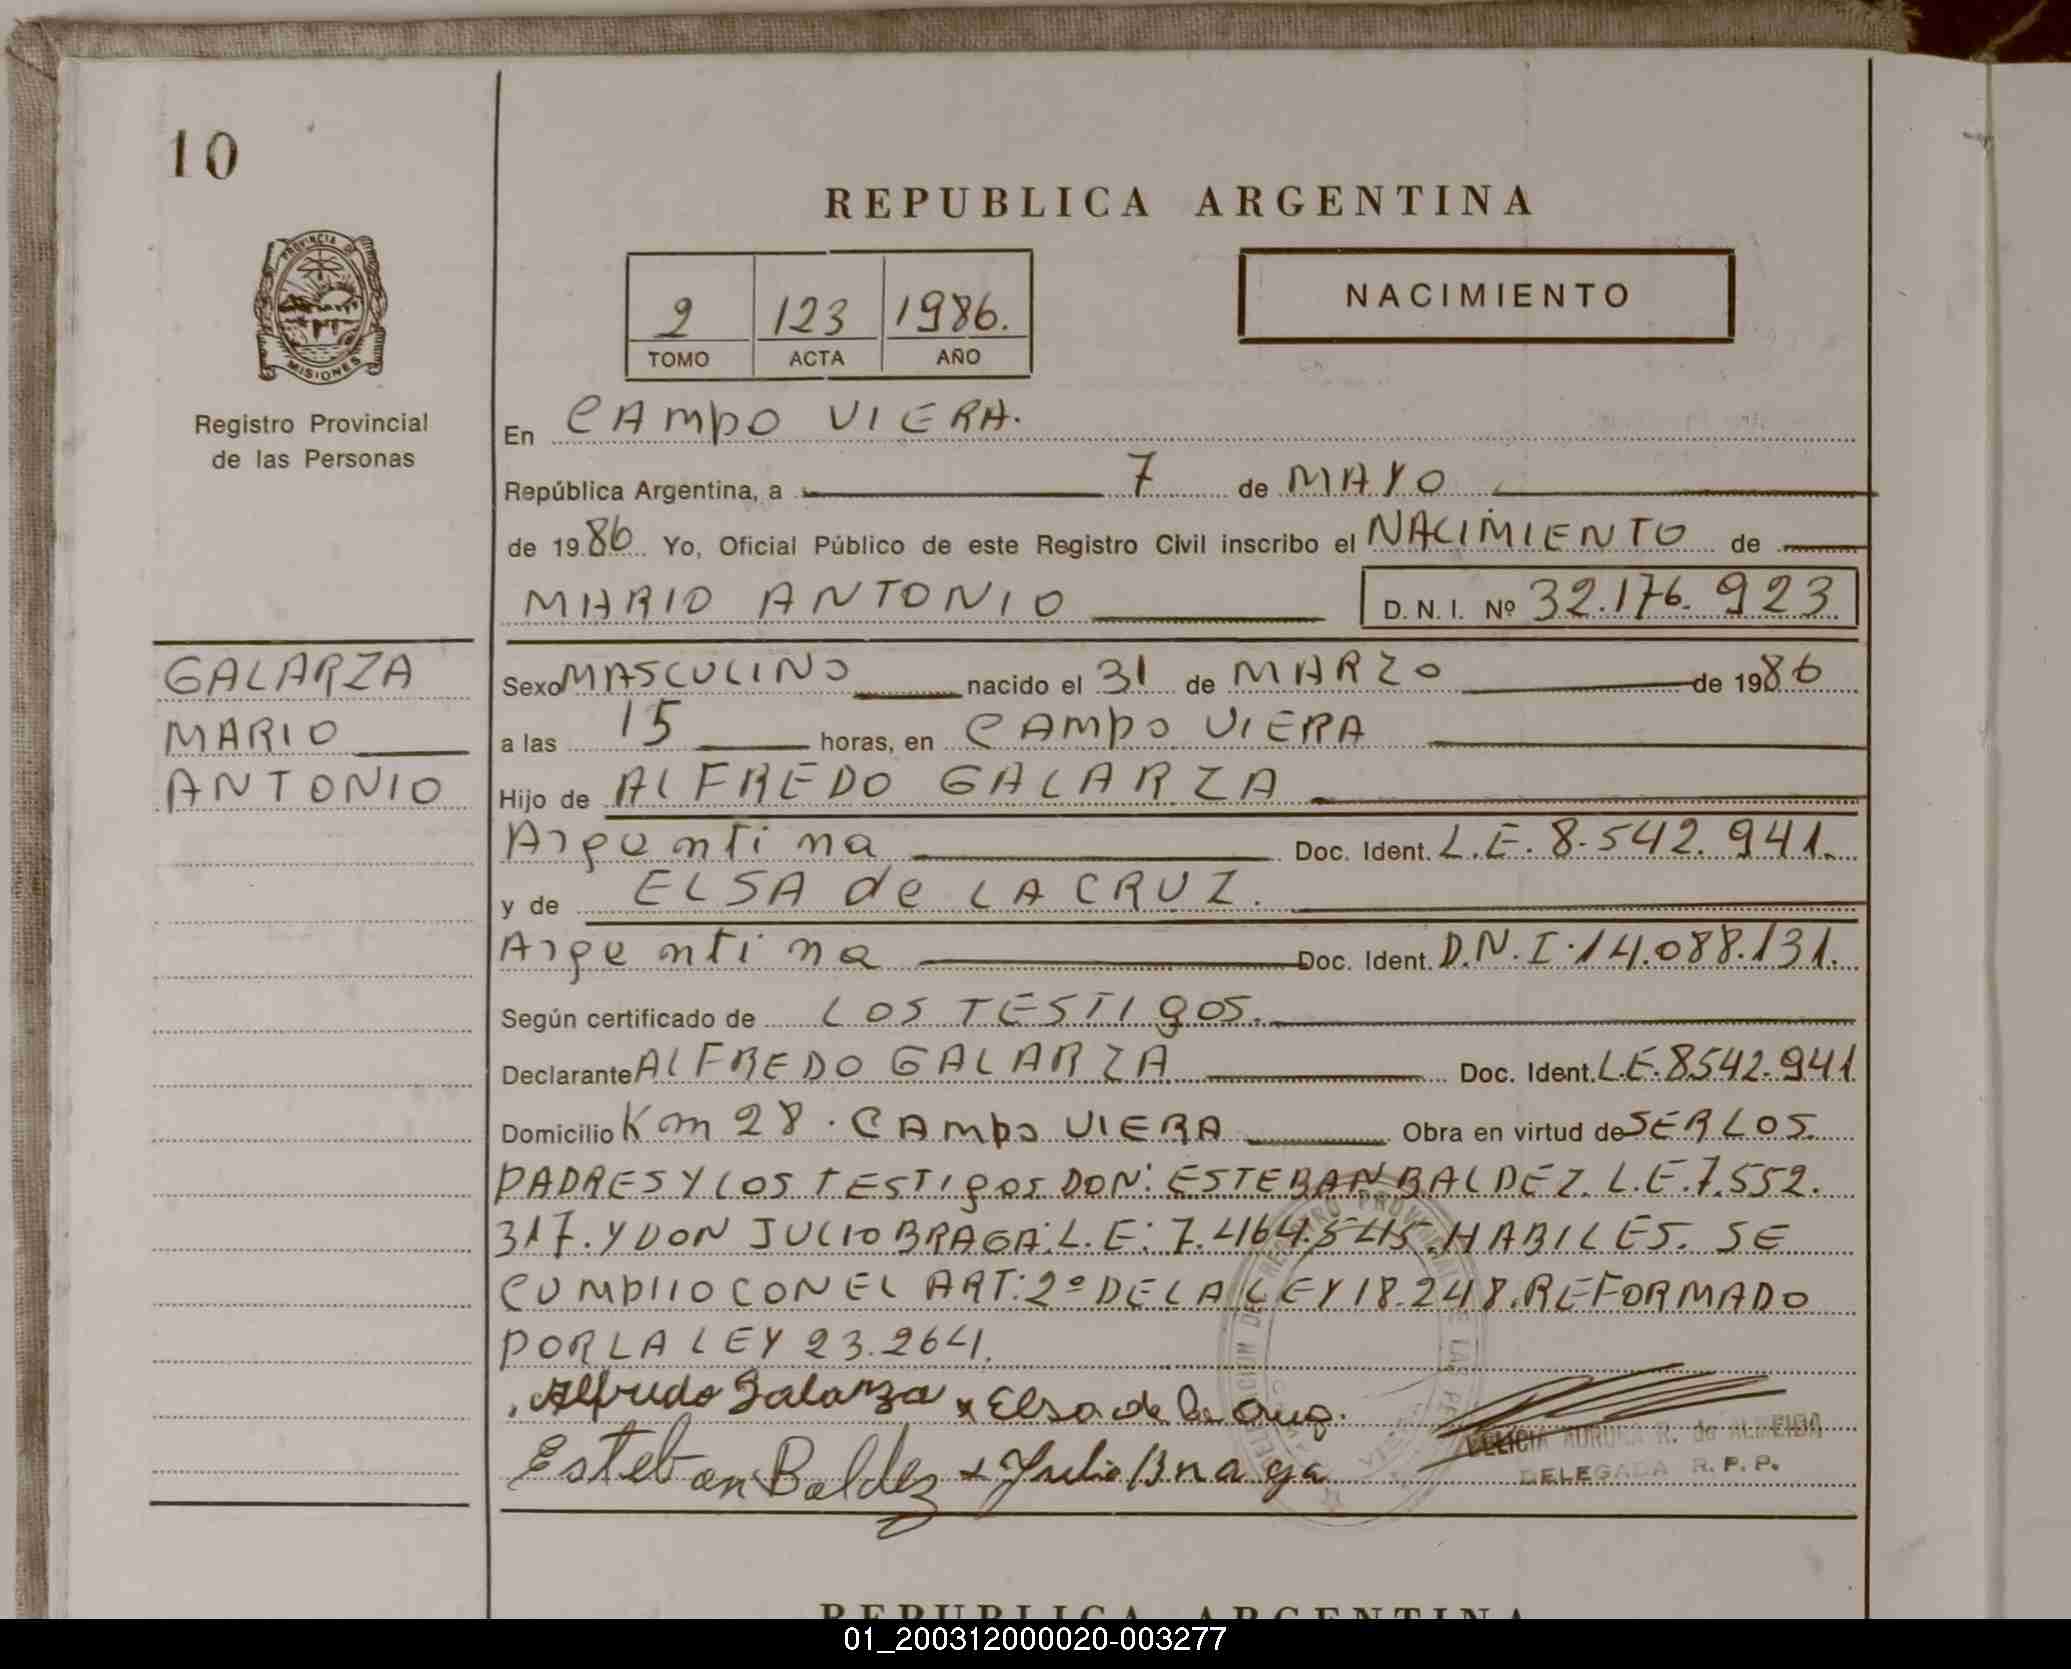 10
PROVINCIA DE
MISIONES
Registro Provincial
de las Personas
GALARZA
MARIO
ANTONIO
REPUBLICA ARGENTINA
2 123 1986.
TOMO ACTA AÑO
NACIMIENTO
En CAMPO VIERA.
República Argentina, a 7 de MAYO
de 1986 Yo, Oficial Público de este Registro Civil inscribo el NACIMIENTO de
MARIO ANTONIO D. N. I. Nº 32.176.923
Sexo MASCULINO nacido el 31 de MARZO de 1986
a las 15 horas, en CAMPO VIERA
Hijo de ALFREDO GALARZA
Argentina Doc. Ident. L.E. 8.542.941.
y de ELSA de LA CRUZ.
Argentina Doc. Ident. D.N.I. 14.088.131.
Según certificado de LOS TESTIGOS.
Declarante ALFREDO GALARZA Doc. Ident. L.E. 8542.941
Domicilio Km 28. CAMPO VIERA Obra en virtud de SER LOS
PADRES Y LOS TESTIGOS DON: ESTEBAN BALDEZ. L.E. 7.552.
317. Y DON JULIO BRAGA: L.E: 7.464.545. HABILES. SE
CUMPLIO CON EL ART: 2º DE LA LEY 18.248. REFORMADO
POR LA LEY 23.264.
Alfredo Galarza x Elsa de la Cruz.
Esteban Baldez x Julio Braga
FELICIA AURORA R. de ALMEIDA
DELEGADA R. P. P.
REPUBLICA ARGENTINA
01_200312000020-003277